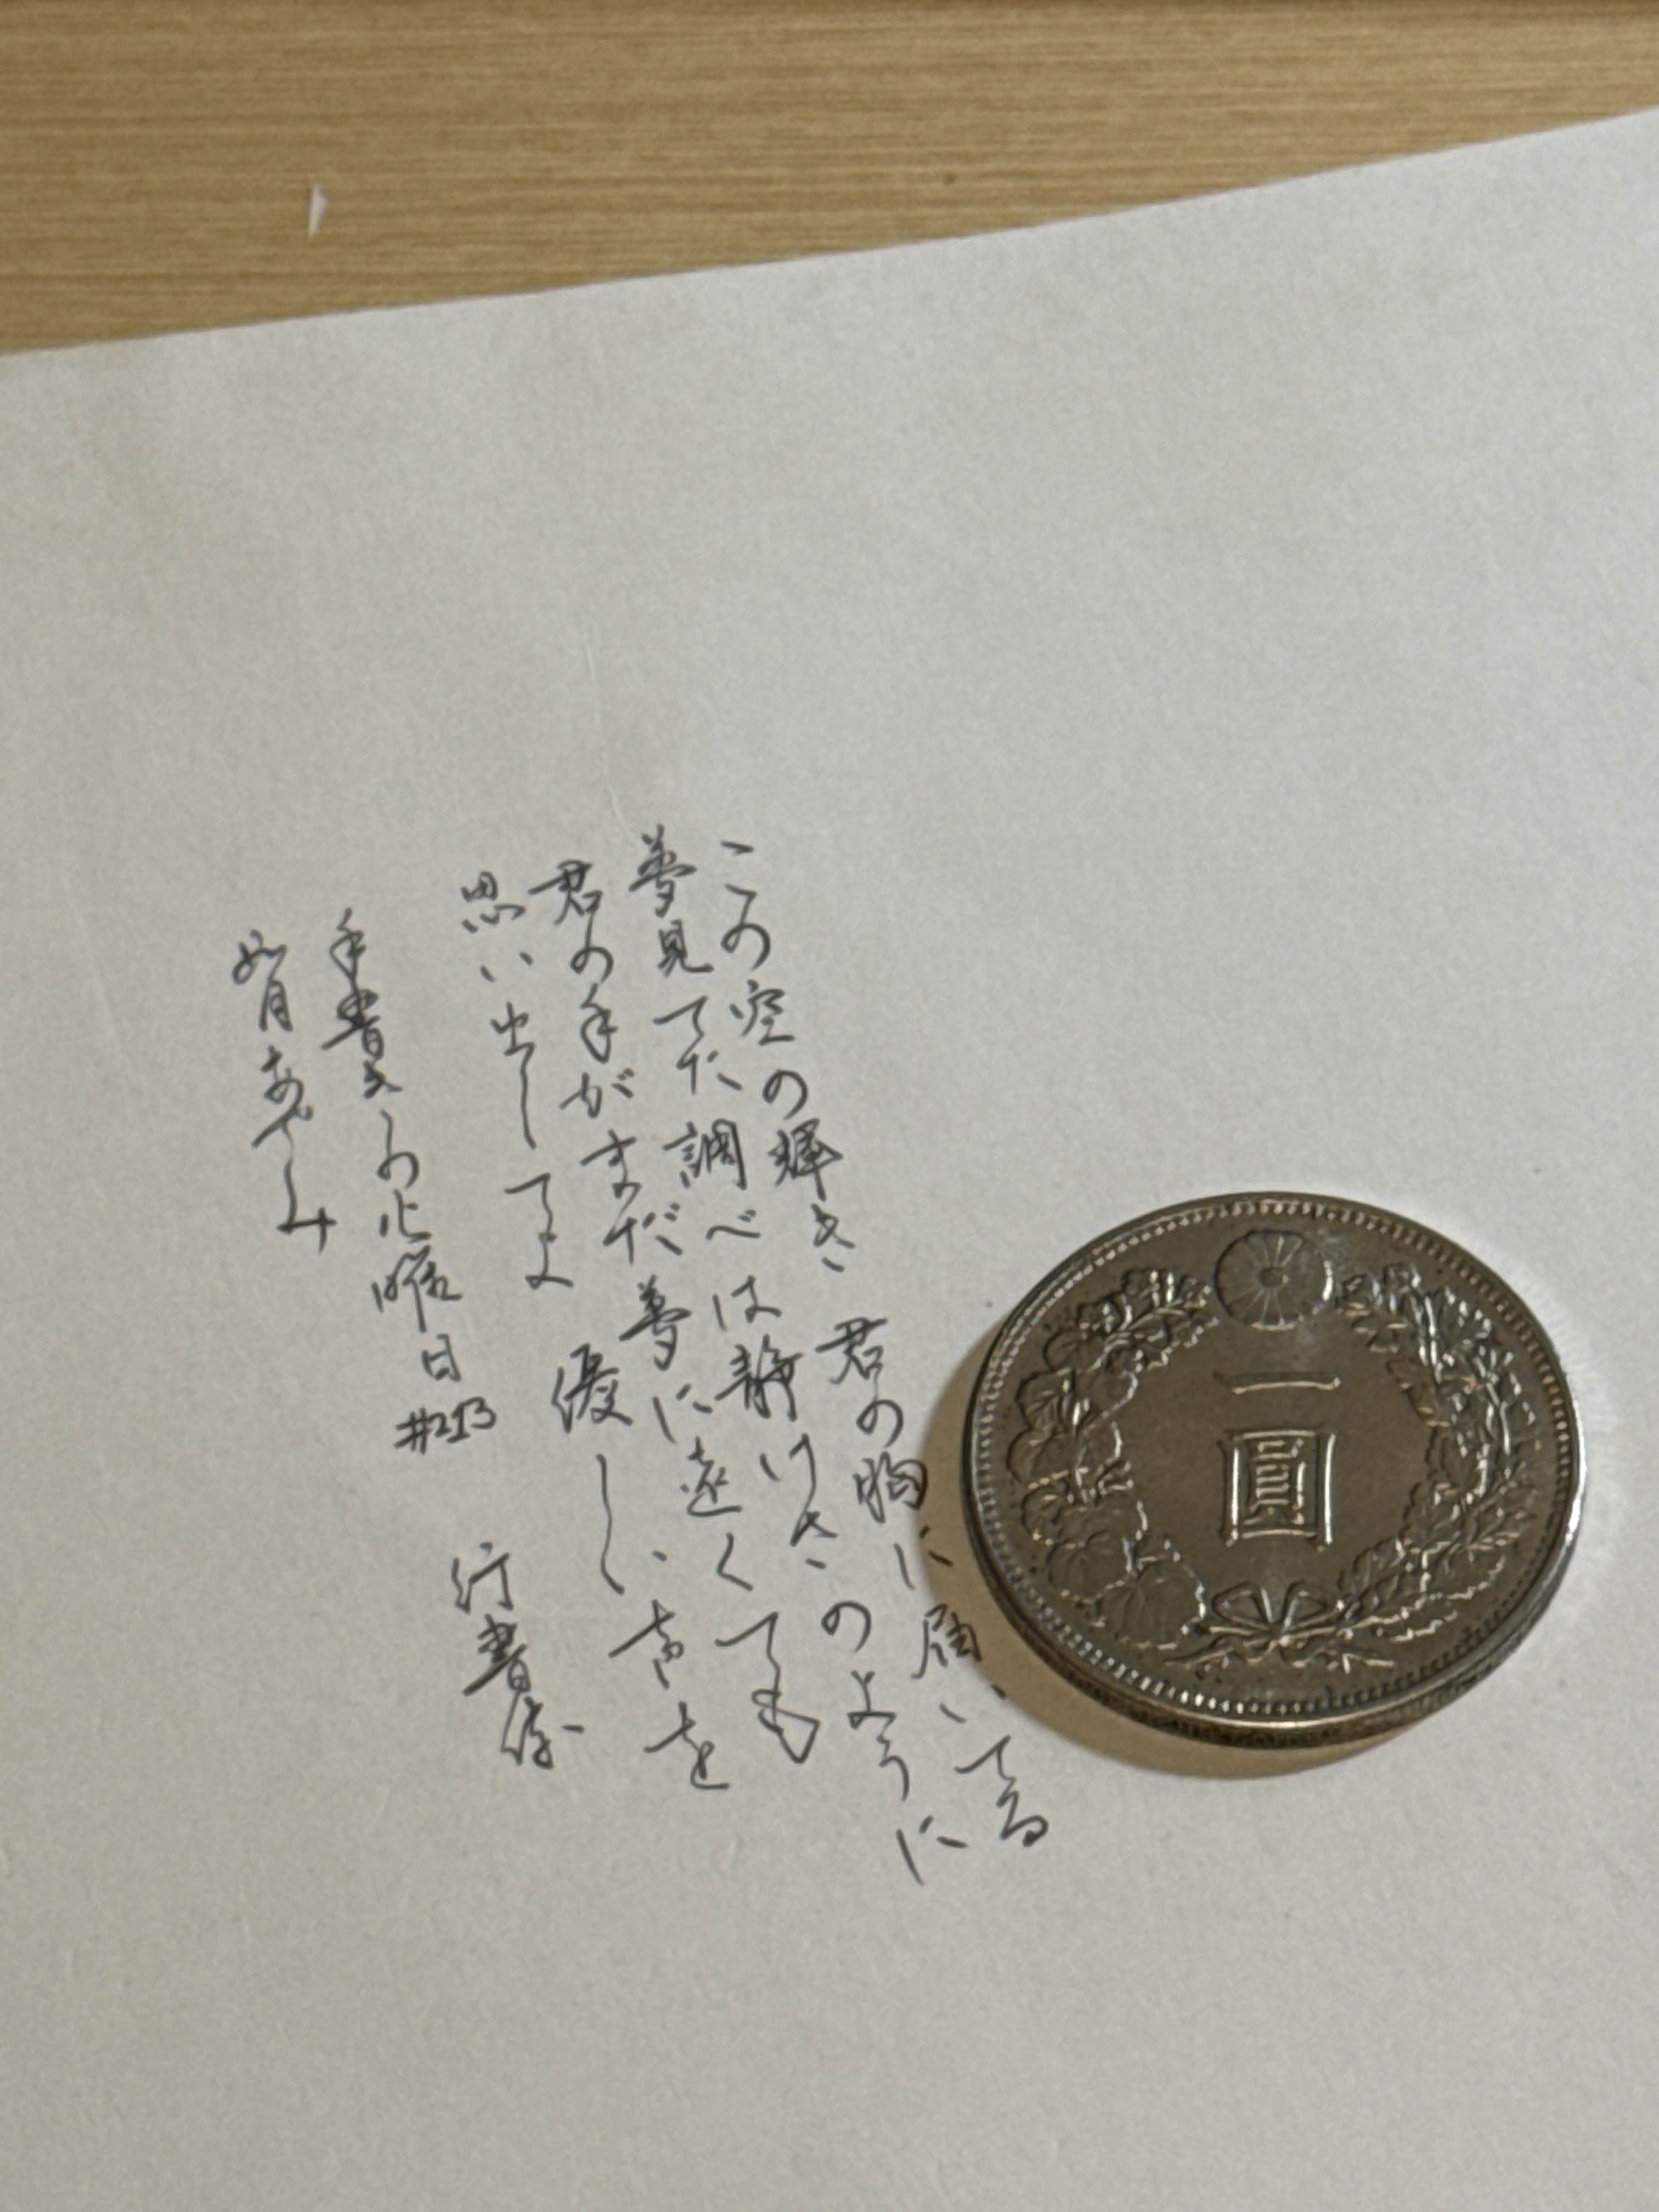 この空の輝き 君の胸に届いてる
夢見てた調べは静けさのように
君の手がまだ夢に遠くても
思い出してよ 優しい声を
手書きの火曜日#213 行書体
如月あやみ
一圓